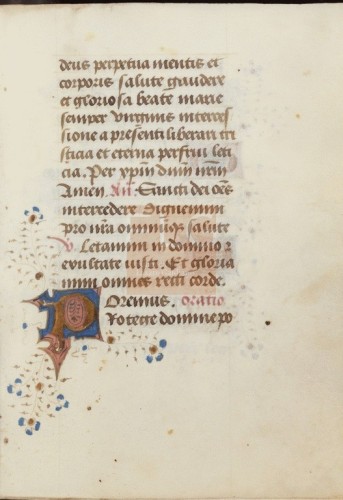 deus perpetua mentis et
corporis salute gaudere
et gloriosa beate marie
semper virginis interces
sione a presenti liberari tri
sticia et eterna perfrui leti
cia. Per xpm dnm nrm
Amen. An. Sancti dei oes
intercedere dignemini
pro nra omniuq salute
V. Letamini in domino z
exultate iusti. Et gloria
mini omnes recti corde.
Oremus. oratio
Protege domine po